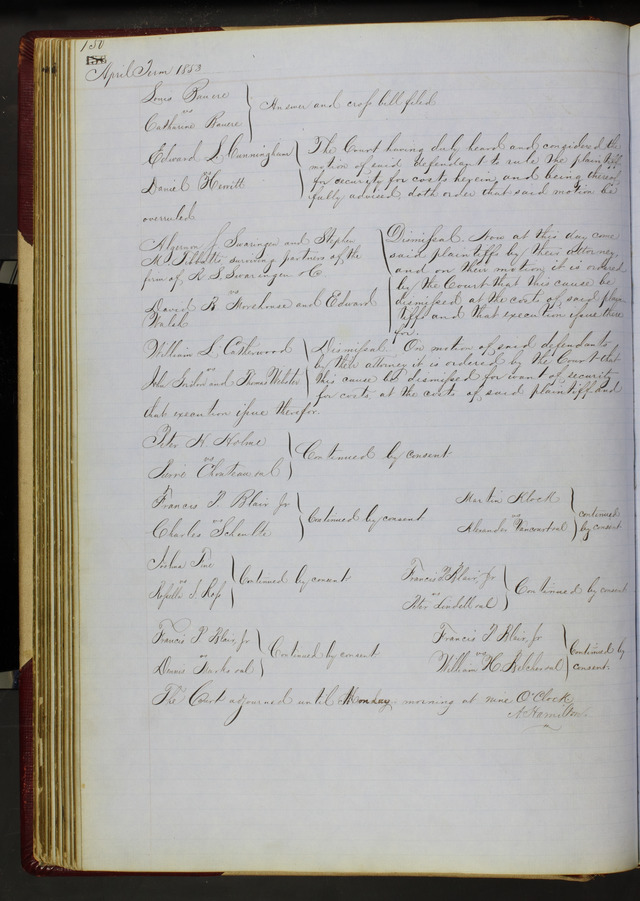 130
April Term 1853
Louis Banere
vs
Catharine Banere
Answer and cross bill filed
Edward L Cunningham
vs
Daniel Hewitt
The Court having duly heard and considered the
motion of said defendant to rule the plaintiff
for security for costs herein, and being thereof
fully advised doth order that said motion be
overruled
Algernon J Swaringen and Stephen
M. surviving partners of the
firm of R S. Swaringen & C
vs
David R Morehouse and Edward
Walsh
Dismissal. Now at this day come
said plaintiffs by their attorney
and on their motion it is ordered
by the Court that this cause be
dismissed at the costs of said plain
tiffs and that execution issue there
for.
William L Catherwood
vs
John and Thomas Webster
Dismissal On motion of said defendants
by their attorney it is ordered by the Court that
this cause be dismissed for want of security
for costs at the costs of said plaintiff and
that execution issue therefor.
Peter H Holme
vs
Pierre Chouteau et al
Continued by consent
Francis P. Blair Jr
vs
Charles Schultte
Continued by consent
Martin Klock
vs
Alexander Vancourt et al
continued
by consent
Joshua
vs
Rosella S. Ross
Continued by consent
Francis P Blair, Jr
vs
Peter Lindell et al
Continued by consent
Francis P. Blair, Jr
vs
Dennis et al
Continued by consent
Francis P Blair, Jr
vs
William H Belcher et al
Continued by
consent
The Court adjourned until Monday morning at nine O'Clock
A. Hamilton